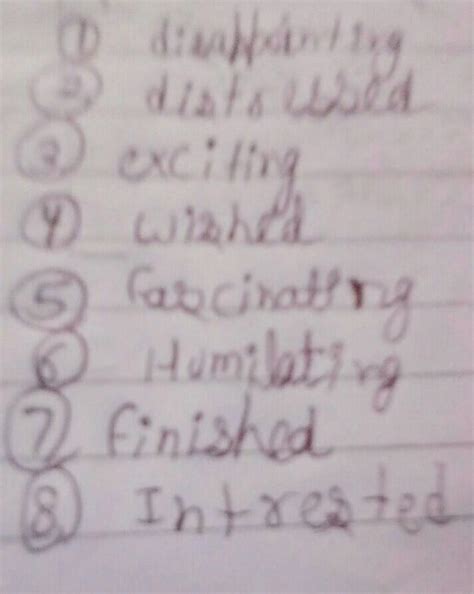 ① disappointing
② distrubbed
③ exciting
④ wished
⑤ fascinating
⑥ Humilating
⑦ finished
⑧ Intrested